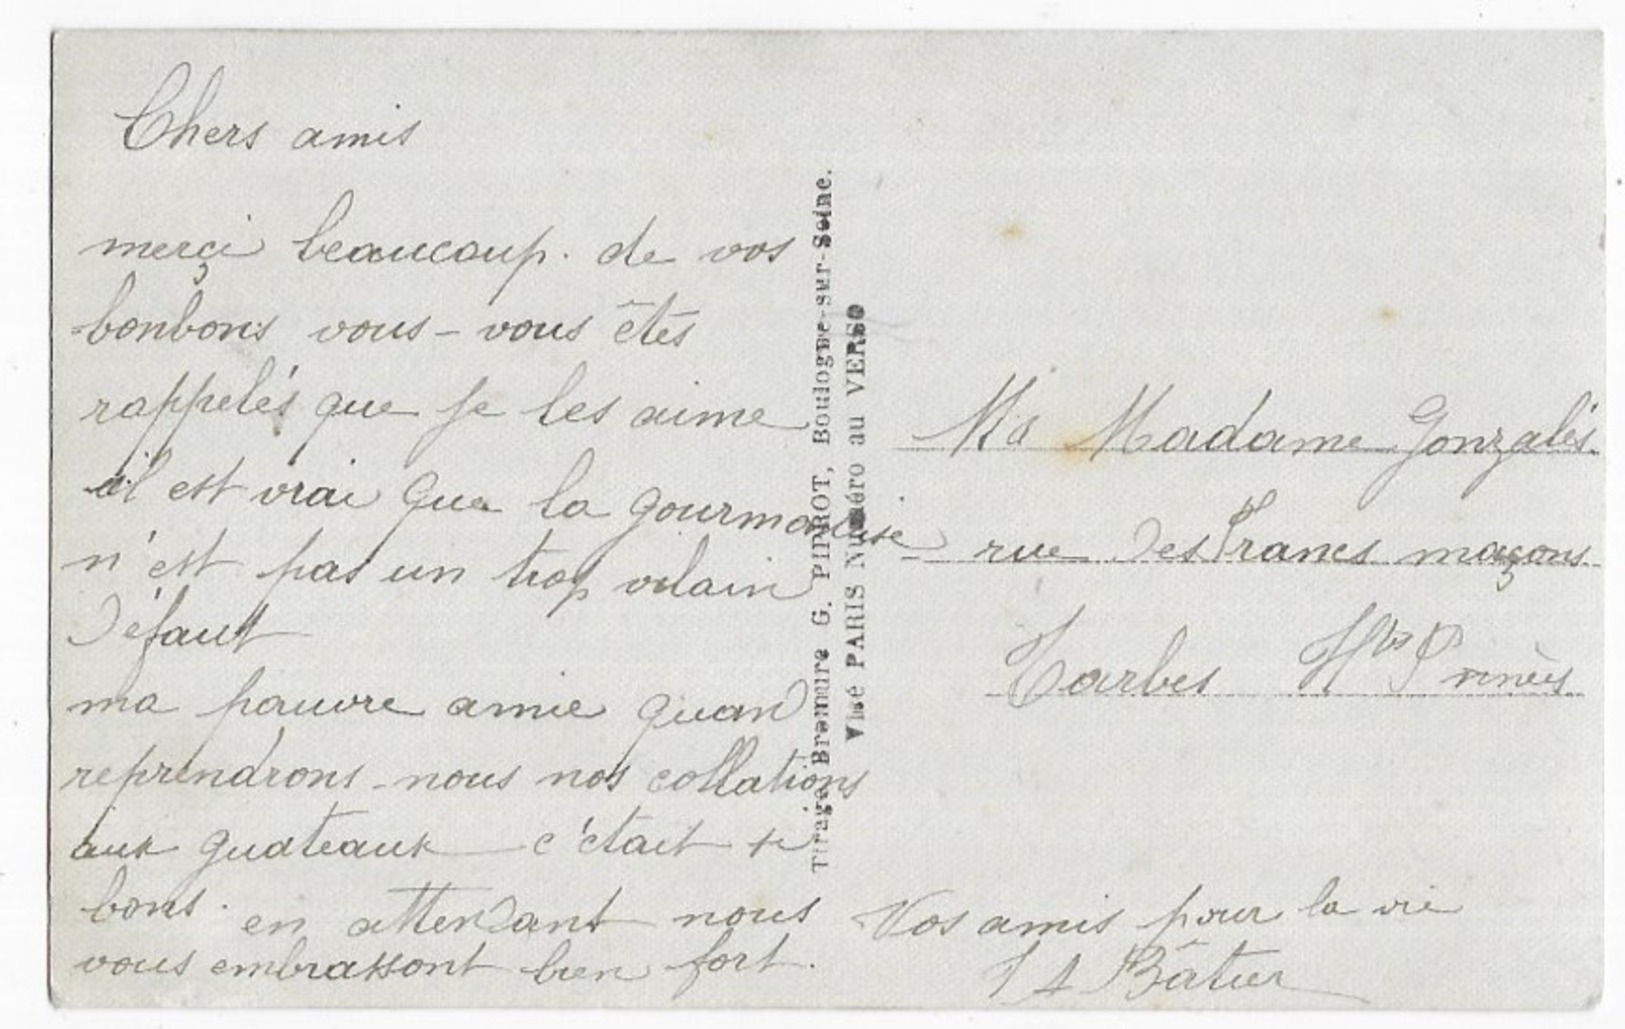 Chers amis
merçi beaucoup. de vos
bonbons vous-vous êtes
rappelés que je les aime
il est vrai que la gourmandise
n'est pas un trop vilain
défaut
ma pauvre amie quand
reprendrons-nous nos collations
aux guateaux c'était si
bons. en attendant nous
vous embrassont bien fort.
Tirage Bromure G. PIPROT, Boulogne-sur-Seine.
Visé PARIS Numéro au VERSO
Madame Gonzalés
rue des Francs maçons
Tarbes Htes
Vos amis pour la vie
Bâtier